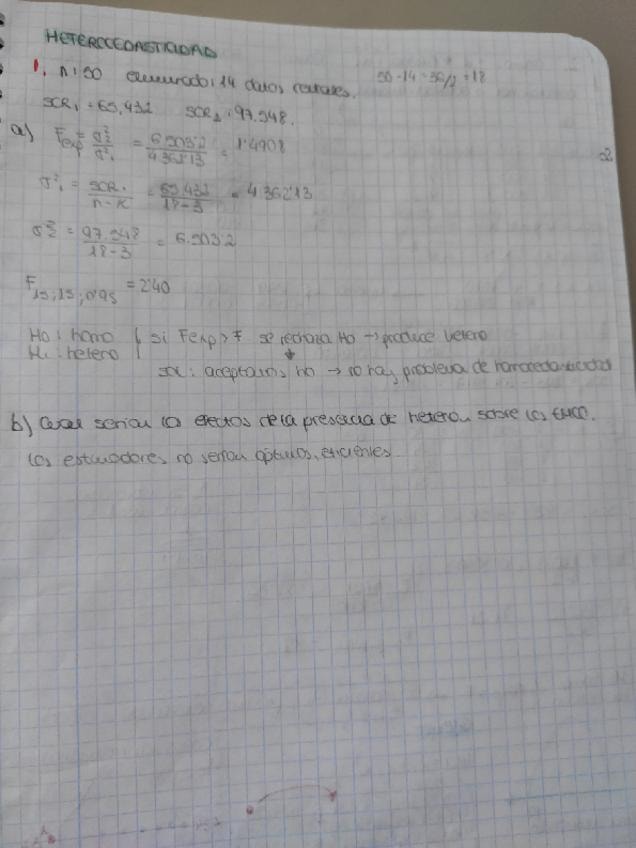 HETEROCEDASTICIDAD
1. n: 50 eliminando: 14 datos centrales. 50-14=36/2=18
SCR₁ = 65,432 SCR₂ = 97.548.
a) Fexp = σ²₂/σ²₁ = 6.503'2/4362'13 = 1'4908
σ²₁ = SCR₁/n-K = 65,432/18-3 = 4.362'13
σ²₂ = 97.548/18-3 = 6.503'2
F15;15;0'95 = 2'40
Ho: homo si Fexp > F se rechaza Ho → produce hetero
H₁: hetero
aceptamos Ho → no hay problema de
b) Cuál serían los efectos de la presencia de sobre los EMCO.
los estimadores no serían óptimos, eficientes